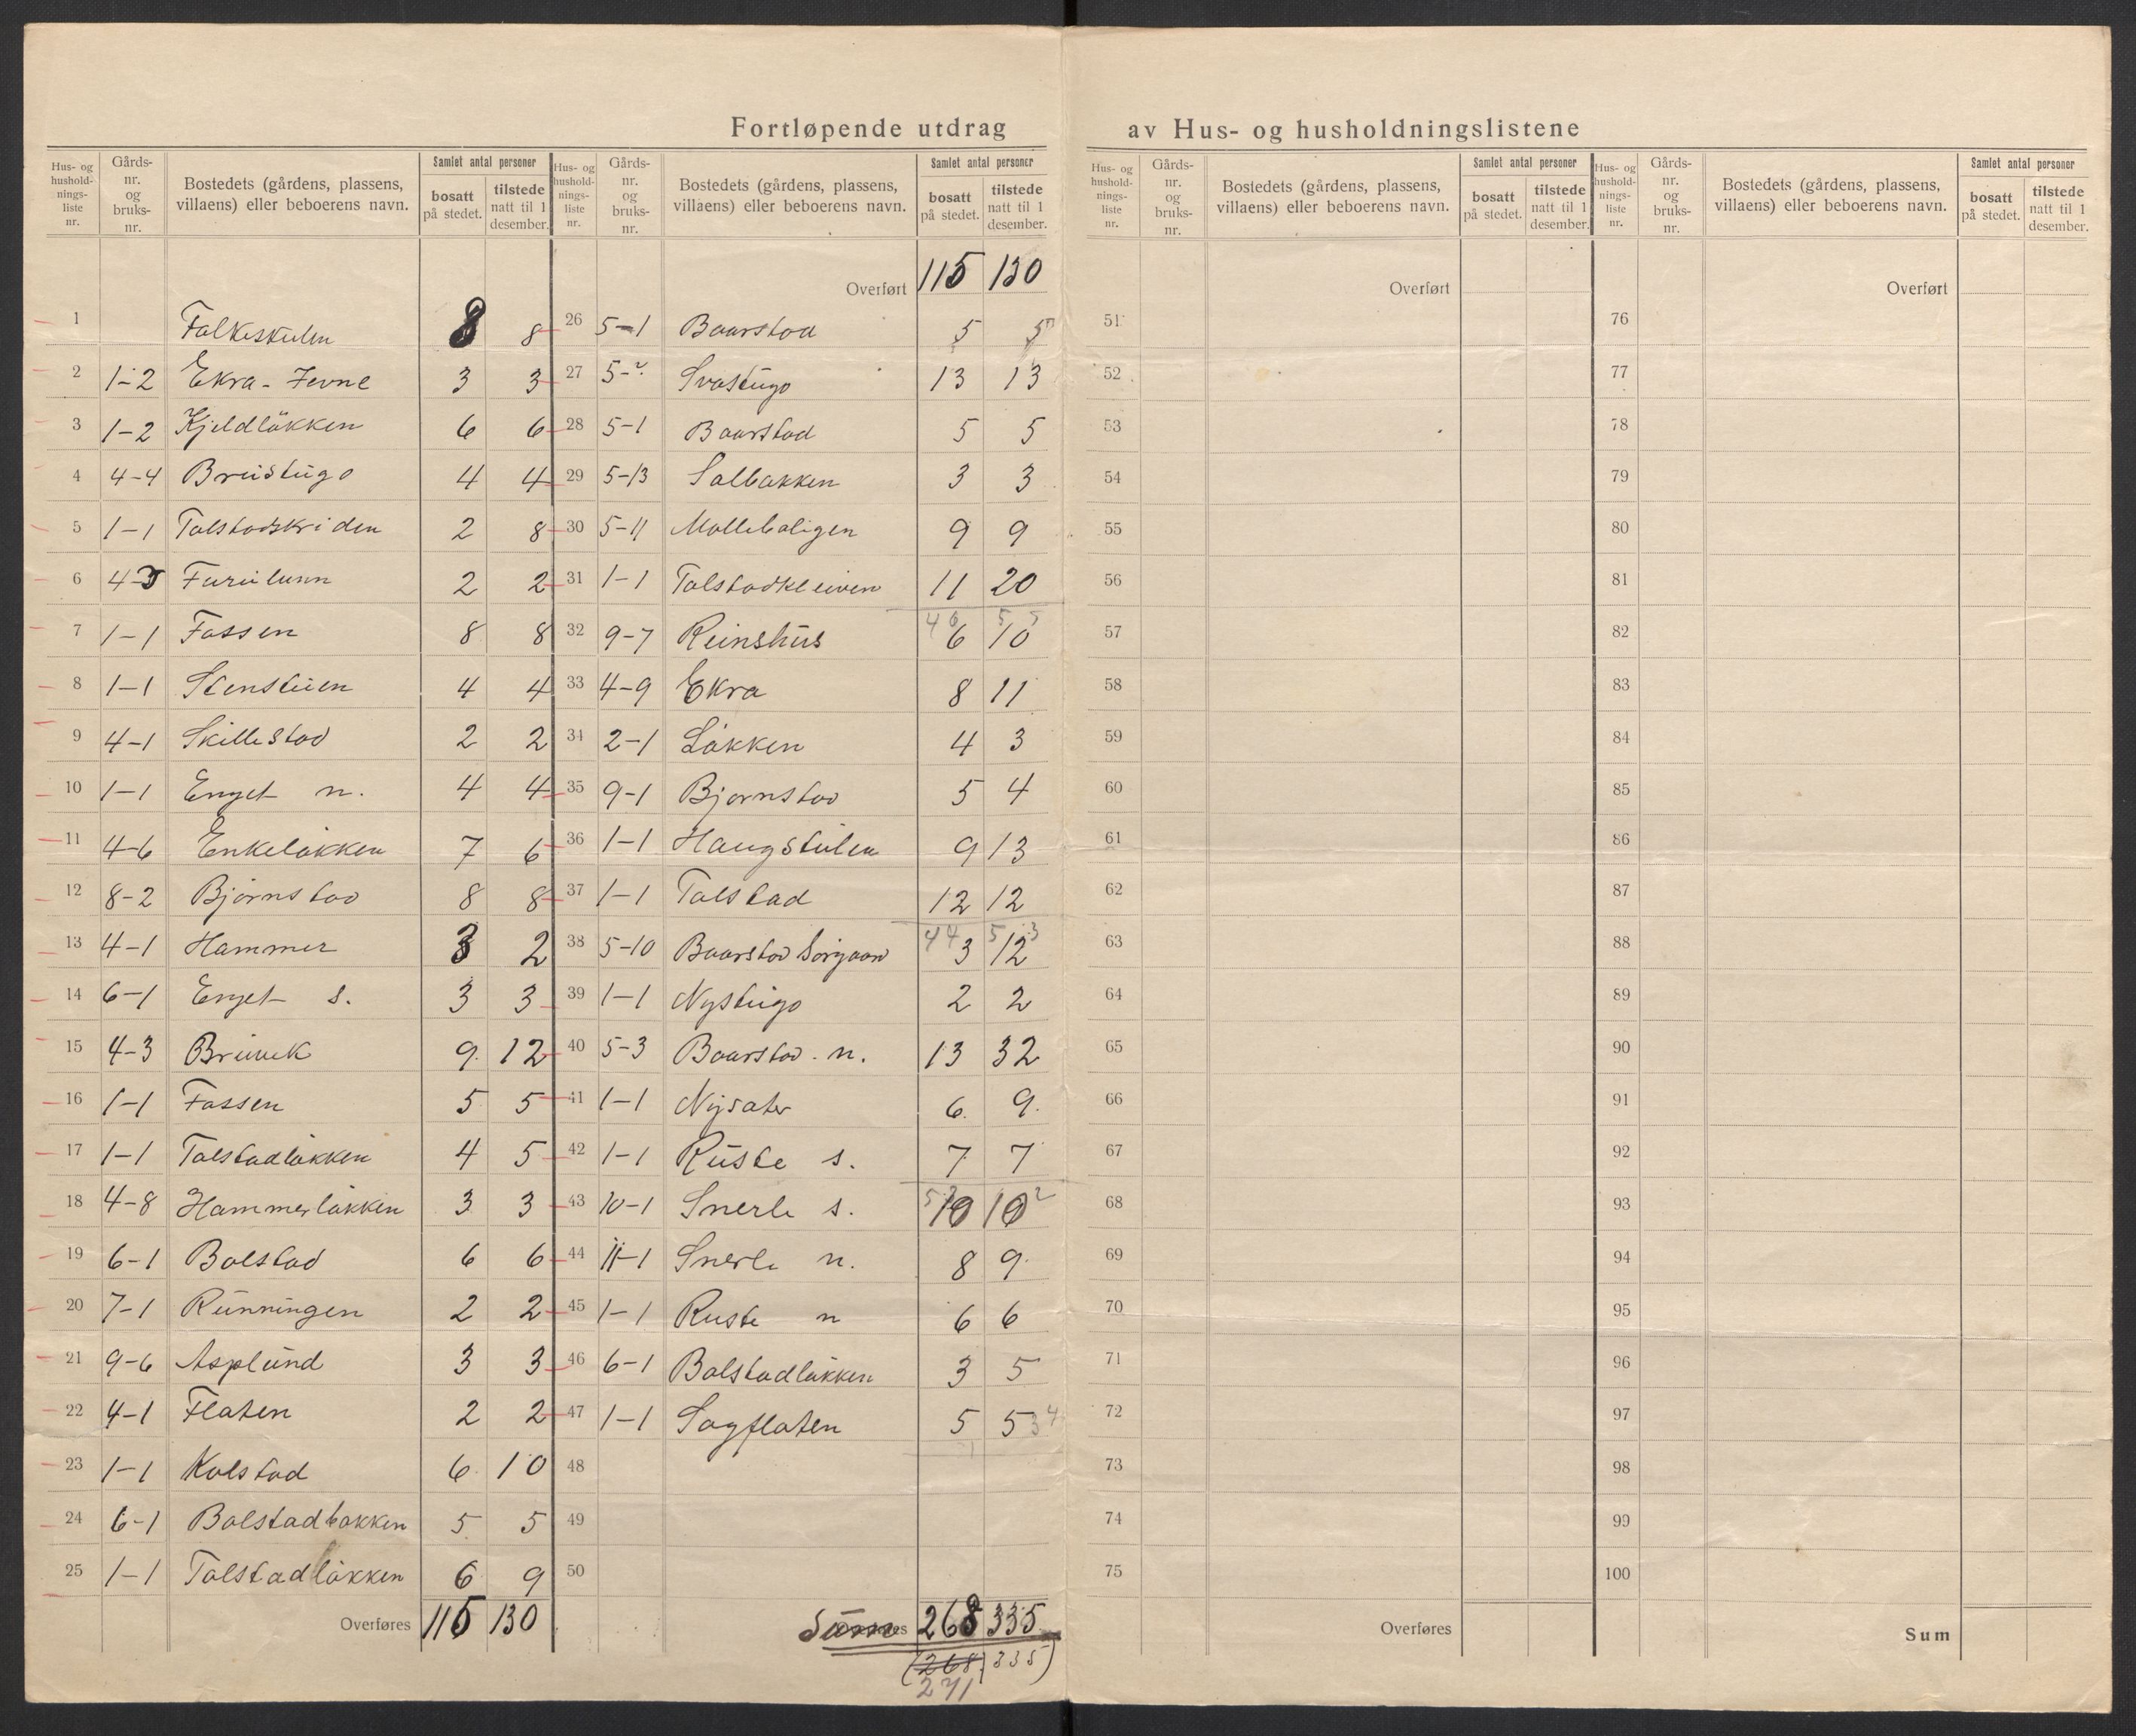 Fortløpende utdrag av Hus- og husholdningslistene
Hus- og husholdningsliste nr. | Gårdsnr. og bruksnr. | Bostedets (gårdens, plassens, villaens) eller beboerens navn. | Samlet antal personer bosatt på stedet. | tilstede natt til 1 desember.
1 Folkeskulen 8 8
2 1-2 Ekra - Jevne 3 3
3 1-2 Kjeldløkken 6 6
4 4-4 Breistugo 4 4
5 1-1 Tolstadskriden 2 8
6 4-3 Furulunn 2 2
7 1-1 Fossen 8 8
8 1-1 Stenstuen 4 4
9 4-1 Skillestad 2 2
10 1-1 Enget n. 4 4
11 4-6 Enkeløkken 7 6
12 8-2 Bjørnstad 8 8
13 4-1 Hammer 3 2
14 6-1 Enget s. 3 3
15 4-3 9 12
16 1-1 Fossen 5 5
17 1-1 Tolstadløkken 4 5
18 4-8 Hammerløkken 3 3
19 6-1 Bolstad 6 6
20 7-1 Rünningen 2 2
21 9-6 Asplünd 3 3
22 4-1 Flaten 2 2
23 1-1 Kolstad 6 10
24 6-1 Bolstadbakken 5 5
25 1-1 Tolstadløkken 6 9
Overføres 115 130
Hus- og husholdningsliste nr. | Gårdsnr. og bruksnr. | Bostedets (gårdens, plassens, villaens) eller beboerens navn. | Samlet antal personer bosatt på stedet. | tilstede natt til 1 desember.
Overført 115 130
26 5-1 Baarstad 5 5
27 5-2 Svastugo 13 13
28 5-1 Baarstad 5 5
29 5-13 Solbakken 3 3
30 5-11 Mølleboligen 9 9
31 1-1 Tolstadkleiven 11 20
32 9-7 Reinshüs 6 10
33 4-9 Ekra 8 11
34 2-1 Løkken 4 3
35 9-1 Bjørnstad 5 4
36 1-1 Haugstülen 9 13
37 1-1 Tolstad 12 12
38 5-10 Baarstad Sørgaard 3 12
39 1-1 Nystugo 2 2
40 5-3 Baarstad n. 13 32
41 1-1 Nysæter 6 9
42 1-1 Rüste s. 7 7
43 10-1 Snerle s. 10 10
44 11-1 Snerle n. 8 9
45 1-1 Ruste n 6 6
46 6-1 Bolstadløkken 3 5
47 1-1 Sagflaten 5 5
48
49
50
Süm 268 335
(268 335)
271
Hus- og husholdningsliste nr. | Gårdsnr. og bruksnr. | Bostedets (gårdens, plassens, villaens) eller beboerens navn. | Samlet antal personer bosatt på stedet. | tilstede natt til 1 desember.
Overført
51
52
53
54
55
56
57
58
59
60
61
62
63
64
65
66
67
68
69
70
71
72
73
74
75
Overføres
Hus- og husholdningsliste nr. | Gårdsnr. og bruksnr. | Bostedets (gårdens, plassens, villaens) eller beboerens navn. | Samlet antal personer bosatt på stedet. | tilstede natt til 1 desember.
Overført
76
77
78
79
80
81
82
83
84
85
86
87
88
89
90
91
92
93
94
95
96
97
98
99
100
Sum